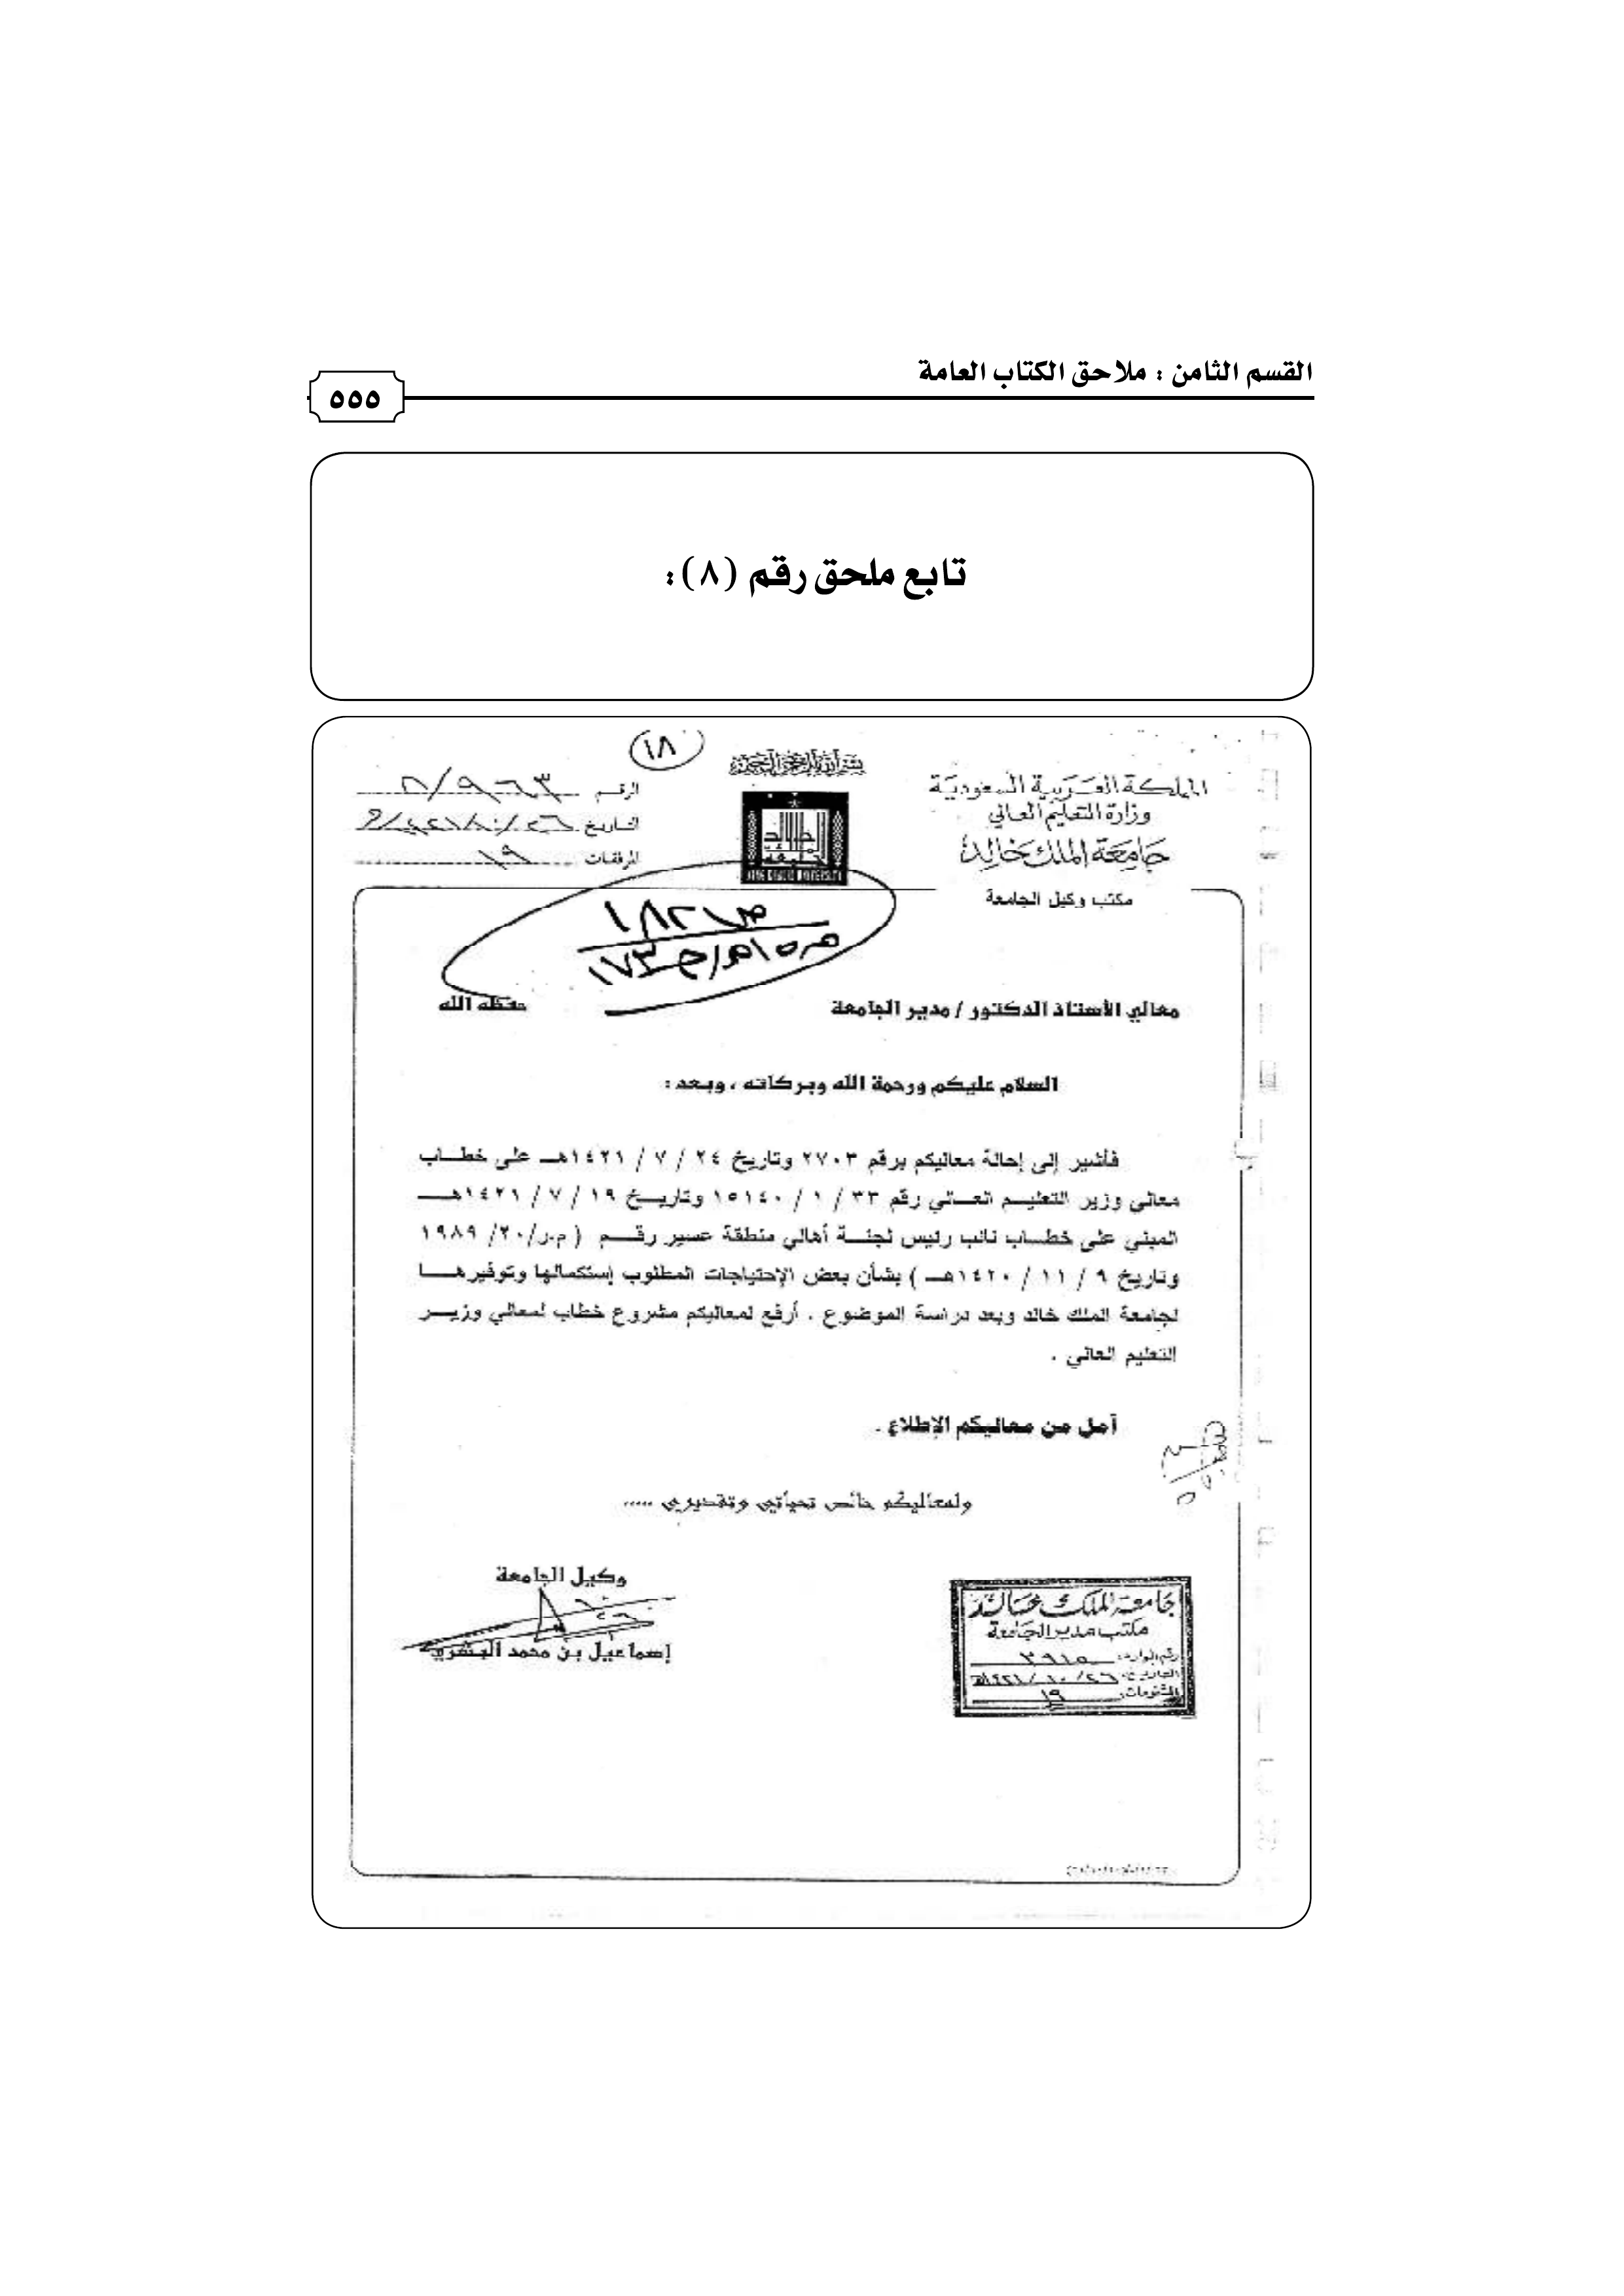 القسم الثامن : ملاحق الكتاب العامة
٥٥٥
تابع ملحق رقم (٨):
١٨
بسم الله الرحمن الرحيم
المملكة العربية السعودية
وزارة التعليم العالي
جامعة الملك خالد
مكتب وكيل الجامعة
الرقم
التاريخ
المرفقات ١٩
KING KHALID UNIVERSITY
معالي الأستاذ الدكتور / مدير الجامعة حفظه الله
السلام عليكم ورحمة الله وبركاته ، وبعد :
فأشير إلى إحالة معاليكم برقم ٢٧٠٣ وتاريخ ٢٤ / ٧ / ١٤٢١هـ على خطاب
معالي وزير التعليم العالي رقم ٣٣ / ١ / ١٥١٤٠ وتاريخ ١٩ / ٧ / ١٤٢١هـ
المبني على خطاب نائب رئيس لجنة أهالي منطقة عسير رقم ( م.ر/٢٠/ ١٩٨٩
وتاريخ ٩ / ١١ / ١٤٢٠هـ ) بشأن بعض الإحتياجات المطلوب إستكمالها وتوفيرها
لجامعة الملك خالد وبعد دراسة الموضوع . أرفع لمعاليكم مشروع خطاب لمعالي وزير
التعليم العالي .
آمل من معاليكم الإطلاع .
ولمعاليكم خالص تحياتي وتقديري .....
وكيل الجامعة
إسماعيل بن محمد البشري
جامعة الملك خالد
مكتب مدير الجامعة
رقم الوارد: ٣٩١٥
التاريخ: ٢٦/ ١٠/ ١٤٢١هـ
المشفوعات: ١٩